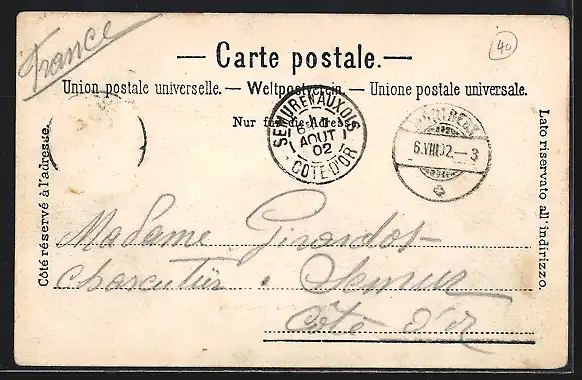 France
40
— Carte postale. —
Union postale universelle. — Weltpostverein. — Unione postale universale.
Nur für die Adresse.
SEMUR EN AUXOIS
AOUT
02
COTE-D'OR
6.VIII.02.–3
Côté réservé à l'adresse.
Lato riservato all'indirizzo.
Madame Girardot
Semur
Côte d'Or